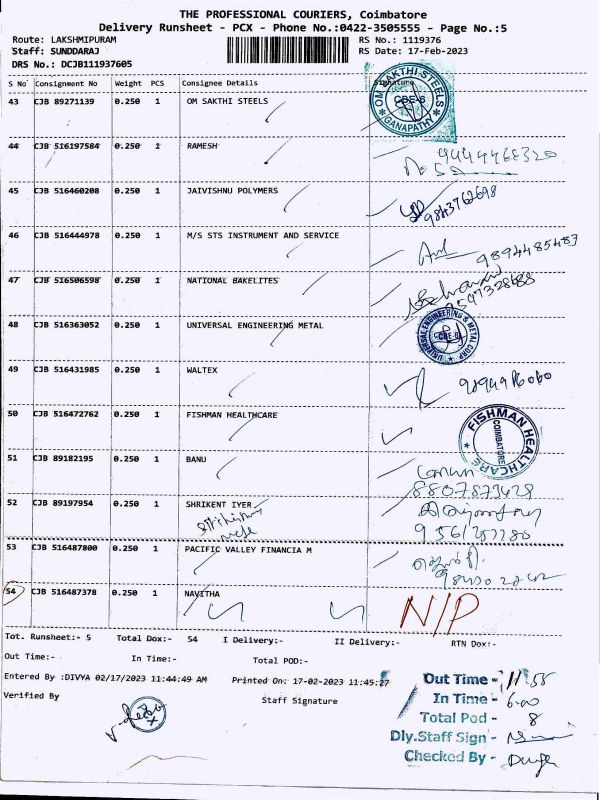 THE PROFESSIONAL COURIERS, Coimbatore
Delivery Runsheet - PCX - Phone No.:0422-3505555 - Page No.:5
Route: LAKSHMIPURAM RS No.: 1119376
Staff: SUNDDARAJ RS Date: 17-Feb-2023
DRS No.: DCJB111937605
S No Consignment No Weight PCS Consignee Details Signature
43 CJB 89271139 0.250 1 OM SAKTHI STEELS
OM SAKTHI STEELS CBE-6 GANAPATHY
44 CJB 516197584 0.250 1 RAMESH 9444468320
45 CJB 516460208 0.250 1 JAIVISHNU POLYMERS 9843762698
46 CJB 516444978 0.250 1 M/S STS INSTRUMENT AND SERVICE 9894485483
47 CJB 516506598 0.250 1 NATIONAL BAKELITES
48 CJB 516363052 0.250 1 UNIVERSAL ENGINEERING METAL
UNIVERSAL ENGINEERING & METAL CORP. CBE-6
49 CJB 516431985 0.250 1 WALTEX
50 CJB 516472762 0.250 1 FISHMAN HEALTHCARE
FISHMAN HEALTHCARE COIMBATORE
51 CJB 89182195 0.250 1 BANU
52 CJB 89197954 0.250 1 SHRIKENT IYER
53 CJB 516487800 0.250 1 PACIFIC VALLEY FINANCIA M
54 CJB 516487378 0.250 1 NAVITHA N/P
Tot. Runsheet:- 5 Total Dox:- 54 I Delivery:- II Delivery:- RTN Dox:-
Out Time:- In Time:- Total POD:-
Entered By :DIVYA 02/17/2023 11:44:49 AM Printed On: 17-02-2023 11:45:27
Verified By Staff Signature
Out Time - 11:55
In Time - 6.00
Total Pod - 8
Dly.Staff Sign -
Checked By -